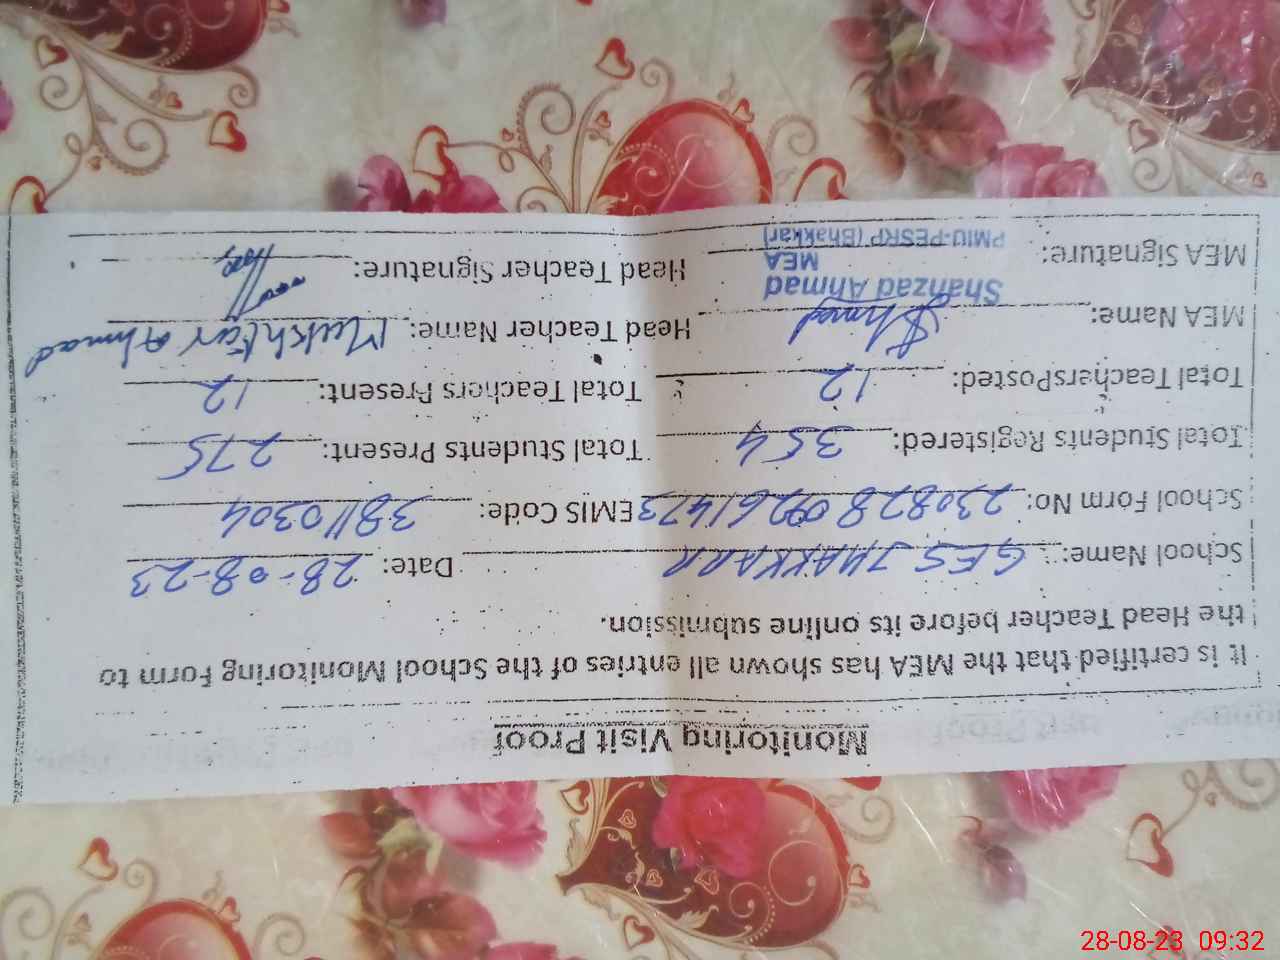 Monitoring Visit Proof
It is certified that the MEA has shown all entries of the School Monitoring Form to
the Head Teacher before its online submission.
School Name: GES JHAKKARR Date: 28-08-23
School Form No: 230828 EMIS Code: 38110304
Total Students Registered: 354 Total Students Present: 275
Total TeachersPosted: 12 Total Teachers Present: 12
MEA Name: Head Teacher Name: Mukhtar Ahmad
Shahzad Ahmad
MEA
MEA Signature: PMIU-PESRP (Bhakkar) Head Teacher Signature:
28-08-23 09:32